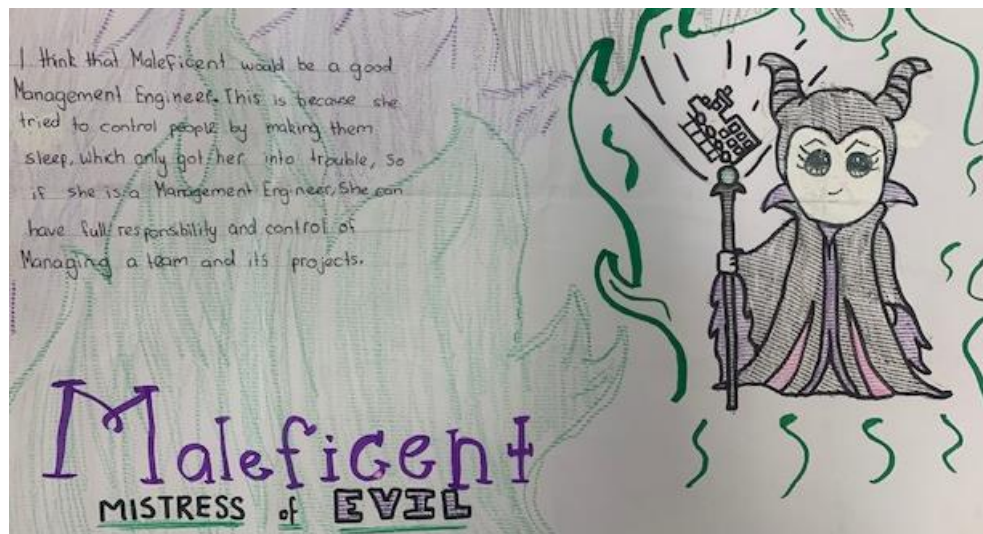 I think that Maleficent would be a good
Management Engineer. This is because she
tried to control people by making them
sleep, which only got her into trouble, So
if she is a Management Engineer, She can
have full responsibility and control of
Managing a team and its projects.
Maleficent
MISTRESS of EVIL